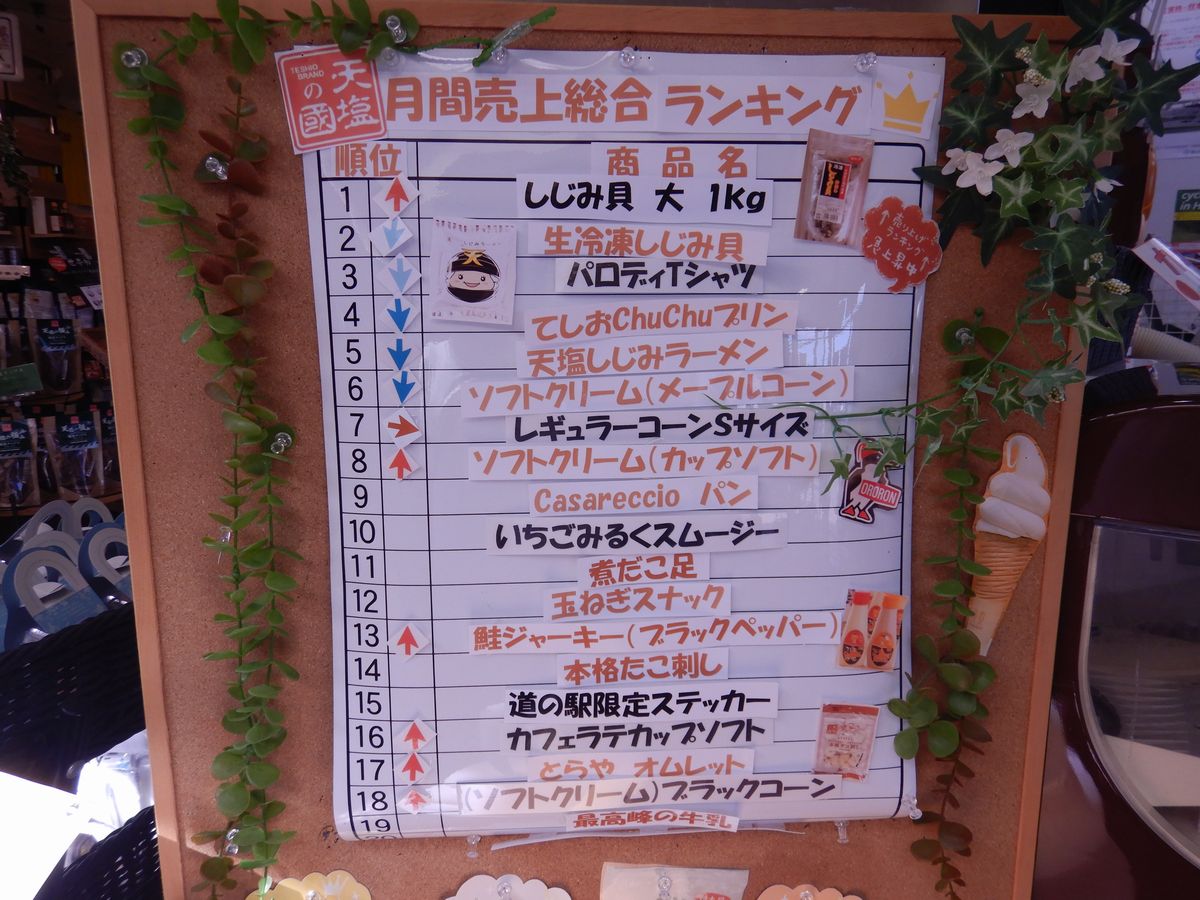 TESHIO BRAND
天塩の國
月間売上総合 ランキング
順位 商品名
1 しじみ貝 大 1Kg
2 生冷凍しじみ貝
3 パロディTシャツ
4 てしおChuChuプリン
5 天塩しじみラーメン
6 ソフトクリーム(メープルコーン)
7 レギュラーコーンSサイズ
8 ソフトクリーム(カップソフト)
9 Casareccio パン
10 いちごみるくスムージー
11 煮だこ足
12 玉ねぎスナック
13 鮭ジャーキー(ブラックペッパー)
14 本格たこ刺し
15 道の駅限定ステッカー
16 カフェラテカップソフト
17 とらや オムレット
18 (ソフトクリーム)ブラックコーン
19 最高峰の牛乳
売り上げ
ランキング
急上昇中
しじみラーメン
天
ORORON